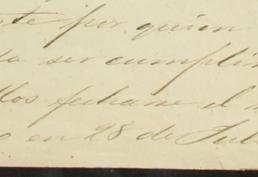 te por quien
a ser cumplim
los fechase el
o en 28 de Jul